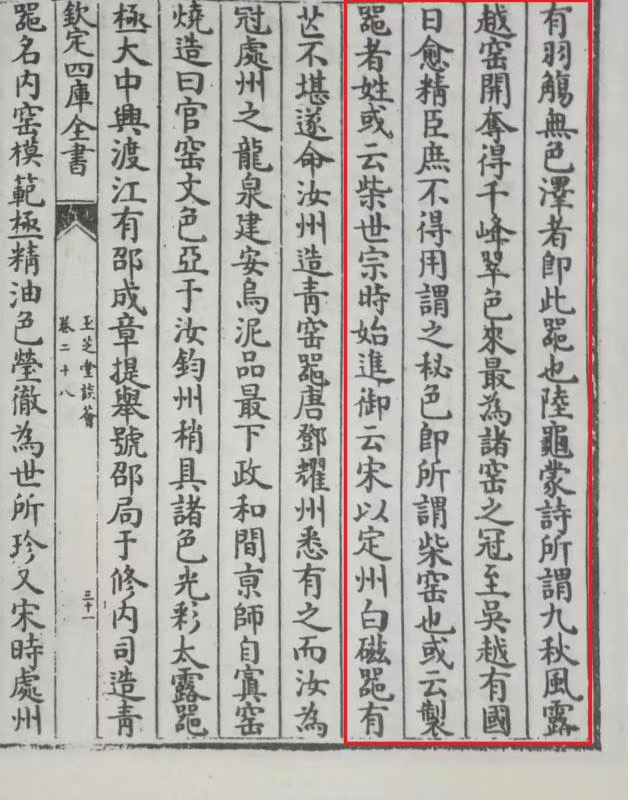 有羽觴無色澤者即此噐也陸龜蒙詩所謂九秋風露
越窑開奪得千峰翠色來最為諸窑之冠至吳越有國
日愈精臣庶不得用謂之秘色即所謂柴窑也或云製
噐者姓或云柴世宗時始進御云宋以定州白磁噐有
芒不堪遂命汝州造青窑噐唐鄧耀州悉有之而汝為
冠處州之龍泉建安烏泥品最下政和間京師自寘窑
燒造曰官窑文色亞于汝鈞州稍具諸色光彩太露噐
極大中興渡江有邵成章提舉號邵局于修内司造青
欽定四庫全書
玉芝堂談薈
卷二十八
三十一
噐名内窑模範極精油色瑩徹為世所珍又宋時處州